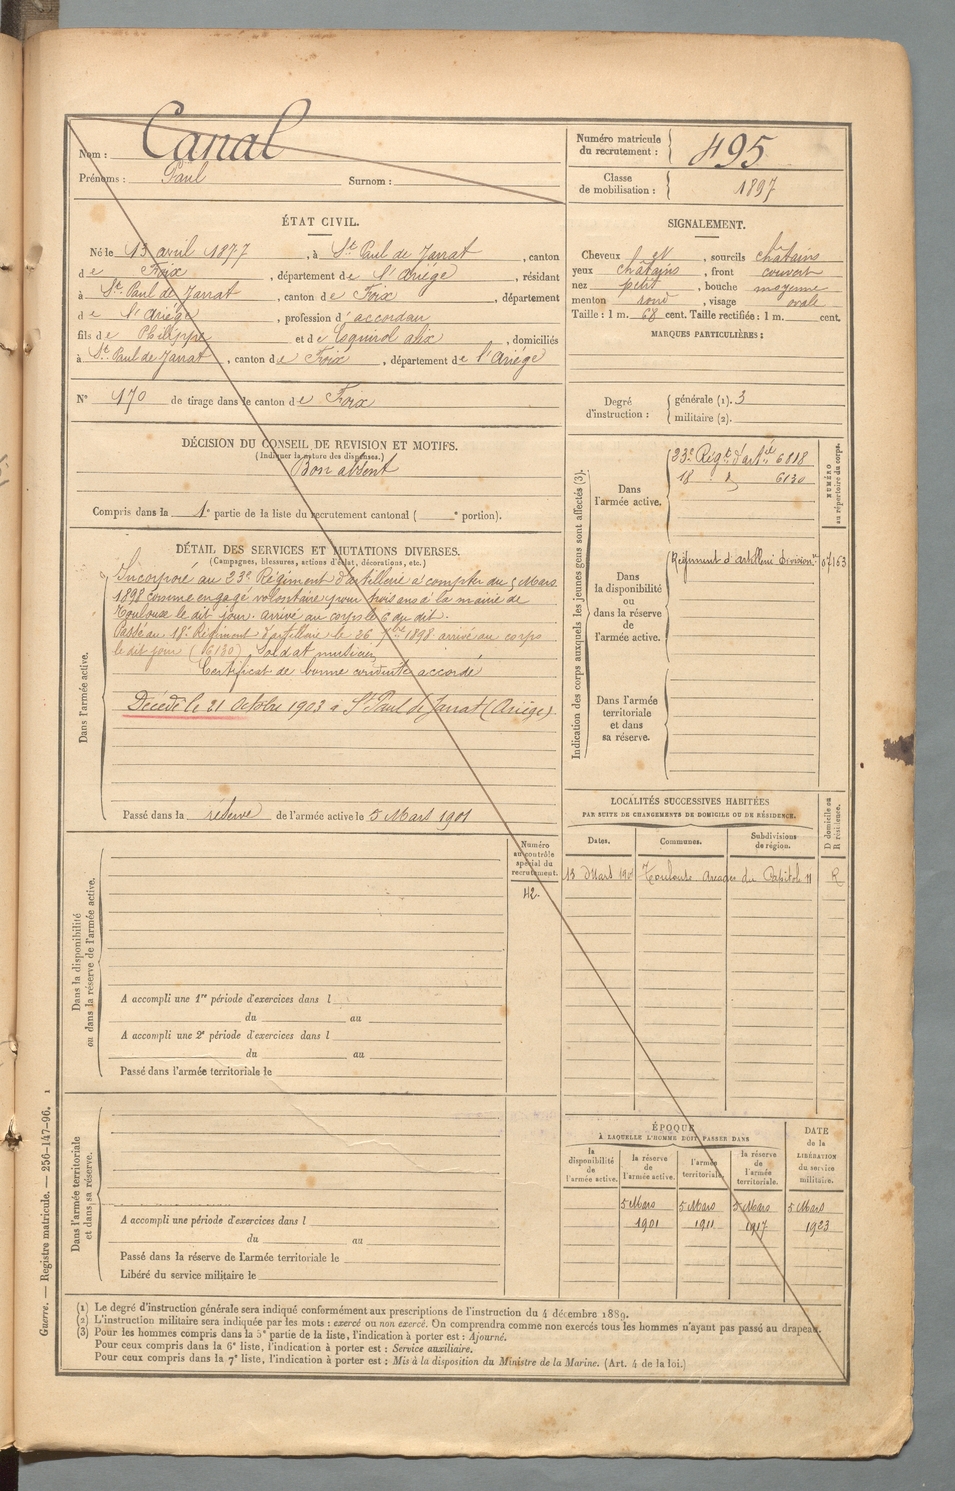 Nom : Canal
Prénoms : Paul Surnom :
Numéro matricule du recrutement : 495
Classe de mobilisation : 1897
ÉTAT CIVIL.
Né le 13 avril 1877, à St Paul de Jarrat, canton
de Foix, département de l'Ariége, résidant
à St Paul de Jarrat, canton de Foix, département
de l'Ariége, profession d'
fils de Philippe et de Esquirol, domiciliés
à St Paul de Jarrat, canton de Foix, département de l'Ariége
N° 170 de tirage dans le canton de Foix
SIGNALEMENT.
Cheveux et, sourcils châtains
yeux châtains, front couvert
nez petit, bouche moyenne
menton rond, visage ovale
Taille : 1 m. 68 cent. Taille rectifiée : 1 m. cent.
MARQUES PARTICULIÈRES :
Degré d'instruction :
générale (1). 3
militaire (2).
DÉCISION DU CONSEIL DE REVISION ET MOTIFS.
(Indiquer la nature des dispenses.)
Bon absent
Compris dans la 1e partie de la liste du recrutement cantonal ( e portion).
DÉTAIL DES SERVICES ET MUTATIONS DIVERSES.
(Campagnes, blessures, actions d'éclat, décorations, etc.)
Dans l'armée active.
Incorporé au 23e Régiment d'artillerie à compter du 5 Mars
1898 comme engagé volontaire pour trois ans à la mairie de
Toulouse le dit jour. arrivé au corps le 6 du dit.
Passé au 18e Régiment d'artillerie le 26 7bre 1898 arrivé au corps
le dit jour (6130) Soldat musicien
Certificat de bonne conduite accordé
Décédé le 21 Octobre 1903 à St Paul de Jarrat (Ariége).
Passé dans la réserve de l'armée active le 5 Mars 1901
Indication des corps auxquels les jeunes gens sont affectés (3).
NUMÉRO au répertoire du corps.
Dans l'armée active.
23e Régt d'artie 6818
18 d 6130
Dans la disponibilité ou dans la réserve de l'armée active.
Régiment d'artillerie
Dans l'armée territoriale et dans sa réserve.
LOCALITÉS SUCCESSIVES HABITÉES
PAR SUITE DE CHANGEMENTS DE DOMICILE OU DE RÉSIDENCE.
D domicile ou R résidence.
Dates. Communes. Subdivisions de région.
13 Mars Toulouse du Capitole 11 R
Dans la disponibilité ou dans la réserve de l'armée active.
Numéro au contrôle spécial du recrutement.
42.
A accompli une 1re période d'exercices dans l
du au
A accompli une 2e période d'exercices dans l
du au
Passé dans l'armée territoriale le
Dans l'armée territoriale et dans sa réserve.
A accompli une période d'exercices dans l
du au
Passé dans la réserve de l'armée territoriale le
Libéré du service militaire le
ÉPOQUE
À LAQUELLE L'HOMME DOIT PASSER DANS
la disponibilité de l'armée active.
la réserve de l'armée active.
l'armée territoriale.
la réserve de l'armée territoriale.
DATE de la LIBÉRATION du service militaire.
5 Mars 5 Mars 5 Mars 5 Mars
1901 1911 1917 1923
(1) Le degré d'instruction générale sera indiqué conformément aux prescriptions de l'instruction du 4 décembre 1889.
(2) L'instruction militaire sera indiquée par les mots : exercé ou non exercé. On comprendra comme non exercés tous les hommes n'ayant pas passé au drapeau.
(3) Pour les hommes compris dans la 5e partie de la liste, l'indication à porter est : Ajourné.
Pour ceux compris dans la 6e liste, l'indication à porter est : Service auxiliaire.
Pour ceux compris dans la 7e liste, l'indication à porter est : Mis à la disposition du Ministre de la Marine. (Art. 4 de la loi.)
Guerre. — Registre matricule. — 256-147-96. 1